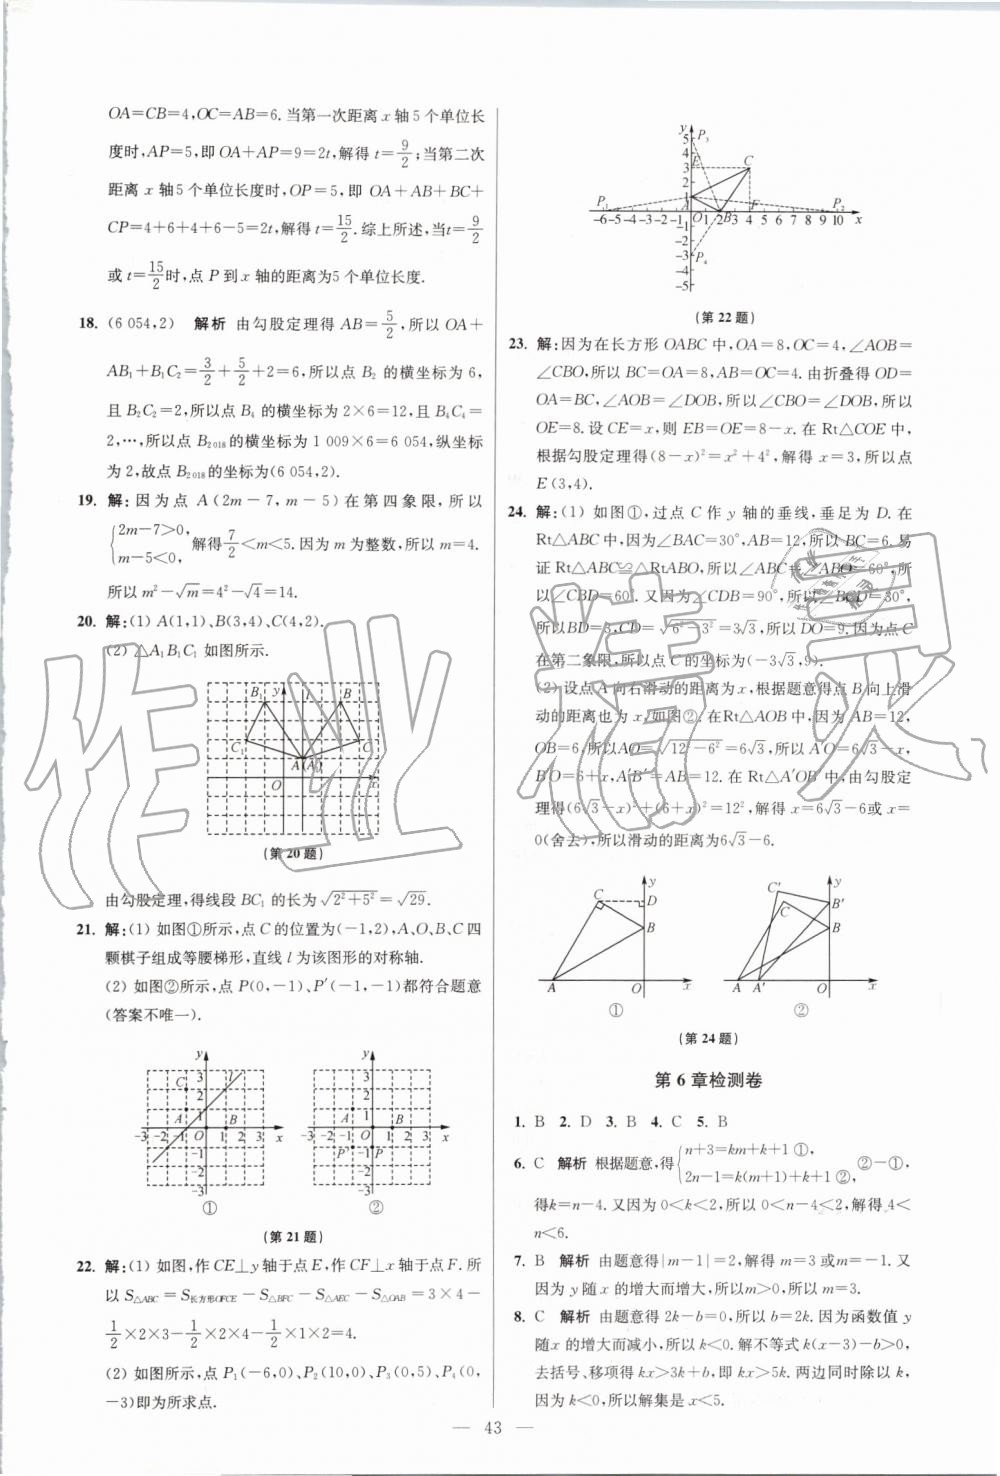 OA=CB=4,OC=AB=6.当第一次距离x轴5个单位长
度时,AP=5,即OA+AP=9=2t,解得t=9/2;当第二次
距离x轴5个单位长度时,OP=5,即OA+AB+BC+
CP=4+6+4+6-5=2t,解得t=15/2.综上所述,当t=9/2
或t=15/2时,点P到x轴的距离为5个单位长度.
18. (6 054,2) 解析 由勾股定理得AB=5/2,所以OA+
AB₁+B₁C₂=3/2+5/2+2=6,所以点B₂的横坐标为6,
且B₂C₂=2,所以点B₄的横坐标为2×6=12,且B₄C₄=
2,…,所以点B₂₀₁₈的横坐标为1 009×6=6 054,纵坐标
为2,故点B₂₀₁₈的坐标为(6 054,2).
19. 解:因为点A(2m-7,m-5)在第四象限,所以
{2m-7>0,
m-5<0, 解得7/2<m<5.因为m为整数,所以m=4.
所以m²-√m=4²-√4=14.
20. 解:(1) A(1,1)、B(3,4)、C(4,2).
(2) △A₁B₁C₁如图所示.
y
l
B₁
B
C₁
C
A(A₁)
O
x
(第20题)
由勾股定理,得线段BC₁的长为√(2²+5²)=√29.
21. 解:(1) 如图①所示,点C的位置为(-1,2),A、O、B、C四
颗棋子组成等腰梯形,直线l为该图形的对称轴.
(2) 如图②所示,点P(0,-1)、P′(-1,-1)都符合题意
(答案不唯一).
y
3
2
1
C
A
B
l
-3 -2 -1 O 1 2 3 x
-1
-2
-3
①
y
3
2
1
A
B
-3 -2 -1 O 1 2 3 x
P′ -1 P
-2
-3
②
(第21题)
22. 解:(1) 如图,作CE⊥y轴于点E,作CF⊥x轴于点F.所
以S△ABC=S长方形OFCE-S△BFC-S△AEC-S△OAB=3×4-
1/2×2×3-1/2×2×4-1/2×1×2=4.
(2) 如图所示,点P₁(-6,0)、P₂(10,0)、P₃(0,5)、P₄(0,
-3)即为所求点.
y
P₃
5
4
3 E C
2
1
A
P₁ O B F P₂
-6-5-4-3-2-1 1 2 3 4 5 6 7 8 9 10 x
-1
-2
-3 P₄
-4
-5
(第22题)
23. 解:因为在长方形OABC中,OA=8,OC=4,∠AOB=
∠CBO,所以BC=OA=8,AB=OC=4.由折叠得OD=
OA=BC,∠AOB=∠DOB,所以∠CBO=∠DOB,所以
OE=8.设CE=x,则EB=OE=8-x.在Rt△COE中,
根据勾股定理得(8-x)²=x²+4²,解得x=3,所以点
E(3,4).
24. 解:(1) 如图①,过点C作y轴的垂线,垂足为D.在
Rt△ABC中,因为∠BAC=30°,AB=12,所以BC=6.易
证Rt△ABC≌△RtABO,所以∠ABC=∠ABO=60°,所
以∠CBD=60°.又因为∠CDB=90°,所以∠BCD=30°,
所以BD=3,CD=√(6²-3²)=3√3,所以DO=9.因为点C
在第二象限,所以点C的坐标为(-3√3,9).
(2) 设点A向右滑动的距离为x,根据题意得点B向上滑
动的距离也为x,如图②.在Rt△AOB中,因为AB=12,
OB=6,所以AO=√(12²-6²)=6√3,所以A′O=6√3-x,
B′O=6+x,A′B′=AB=12.在Rt△A′OB′中,由勾股定
理得(6√3-x)²+(6+x)²=12²,解得x=6√3-6或x=
0(舍去),所以滑动的距离为6√3-6.
y
C
D
B
A
O
x
①
y
C′
C
B′
B
A
A′
O
x
②
(第24题)
第6章检测卷
1. B 2. D 3. B 4. C 5. B
6. C 解析 根据题意,得{n+3=km+k+1 ①,
2n-1=k(m+1)+k+1 ②, ②-①,
得k=n-4.又因为0<k<2,所以0<n-4<2,解得4<
n<6.
7. B 解析 由题意得|m-1|=2,解得m=3或m=-1.又
因为y随x的增大而增大,所以m>0,所以m=3.
8. C 解析 由题意得2k-b=0,所以b=2k.因为函数值y
随x的增大而减小,所以k<0.解不等式k(x-3)-b>0,
去括号、移项得kx>3k+b,即kx>5k.两边同时除以k,
因为k<0,所以解集是x<5.
— 43 —
作业精灵